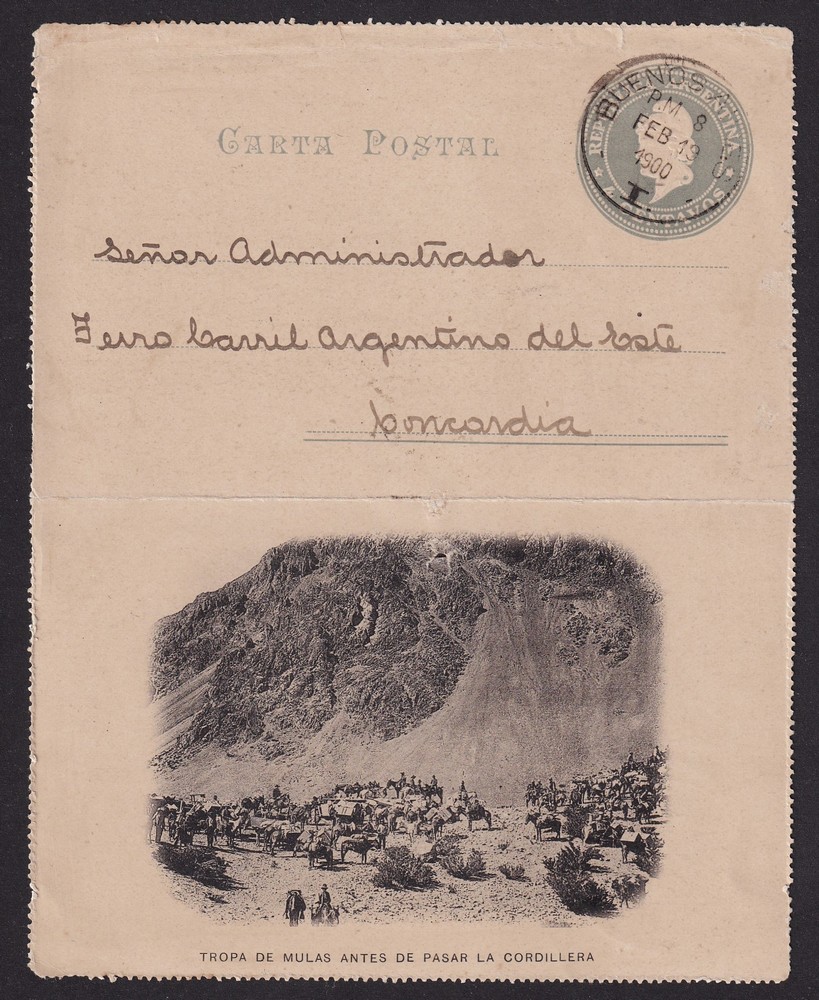 CARTA POSTAL
BUENOS
P.M. 8
FEB 19
1900
I.
REP
ENTINA
4 CENTAVOS
Señor Administrador
Ferro Carril Argentino del Este
Concordia
TROPA DE MULAS ANTES DE PASAR LA CORDILLERA